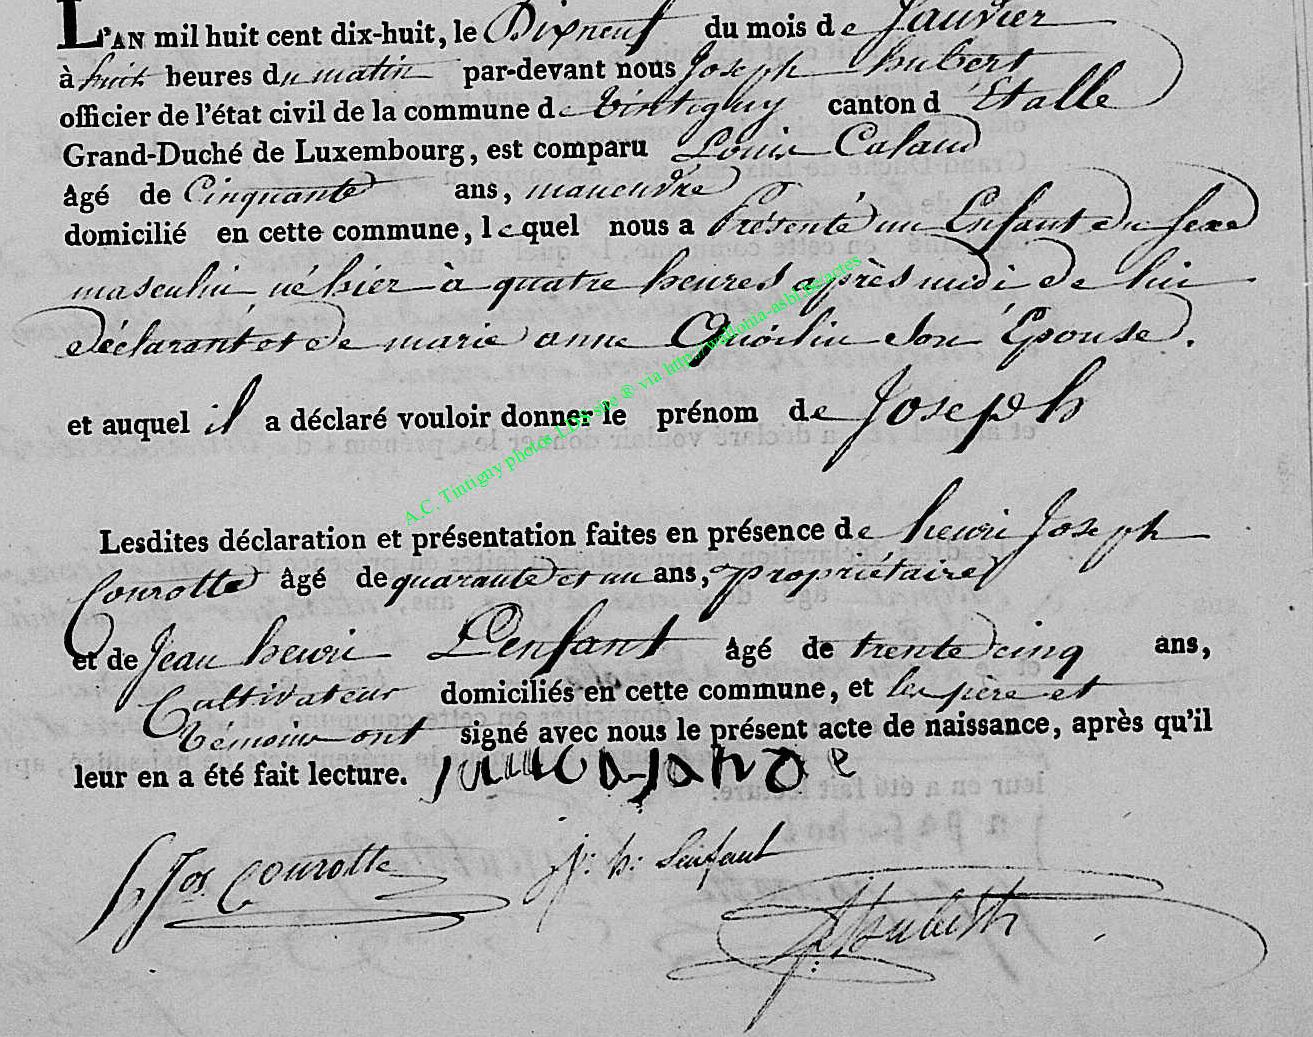 L'AN mil huit cent dix-huit, le Dixneuf du mois de Janvier
à huit heures du matin par-devant nous Joseph hubert
officier de l'état civil de la commune de tintigny canton d'Etalle
Grand-Duché de Luxembourg, est comparu Louis Caland
âgé de Cinquante ans, maneuvre
domicilié en cette commune, lequel nous a Présenté un Enfant du sexe
masculin né hier à quatre heures après midi de lui
déclarant et de marie anne Quoilin son Épouse.
et auquel il a déclaré vouloir donner le prénom de Joseph
A.C. Tintigny photos LDS site ® via http://wallonia-asbl.be/actes
Lesdites déclaration et présentation faites en présence de henri Joseph
Courotte âgé de quarante et un ans, propriétaire
et de Jean henri Lenfant âgé de trente cinq ans,
Cultivateur domiciliés en cette commune, et les père et
témoins ont signé avec nous le présent acte de naissance, après qu'il
leur en a été fait lecture.
h Jos Courotte j. h. Lenfant
Hubert